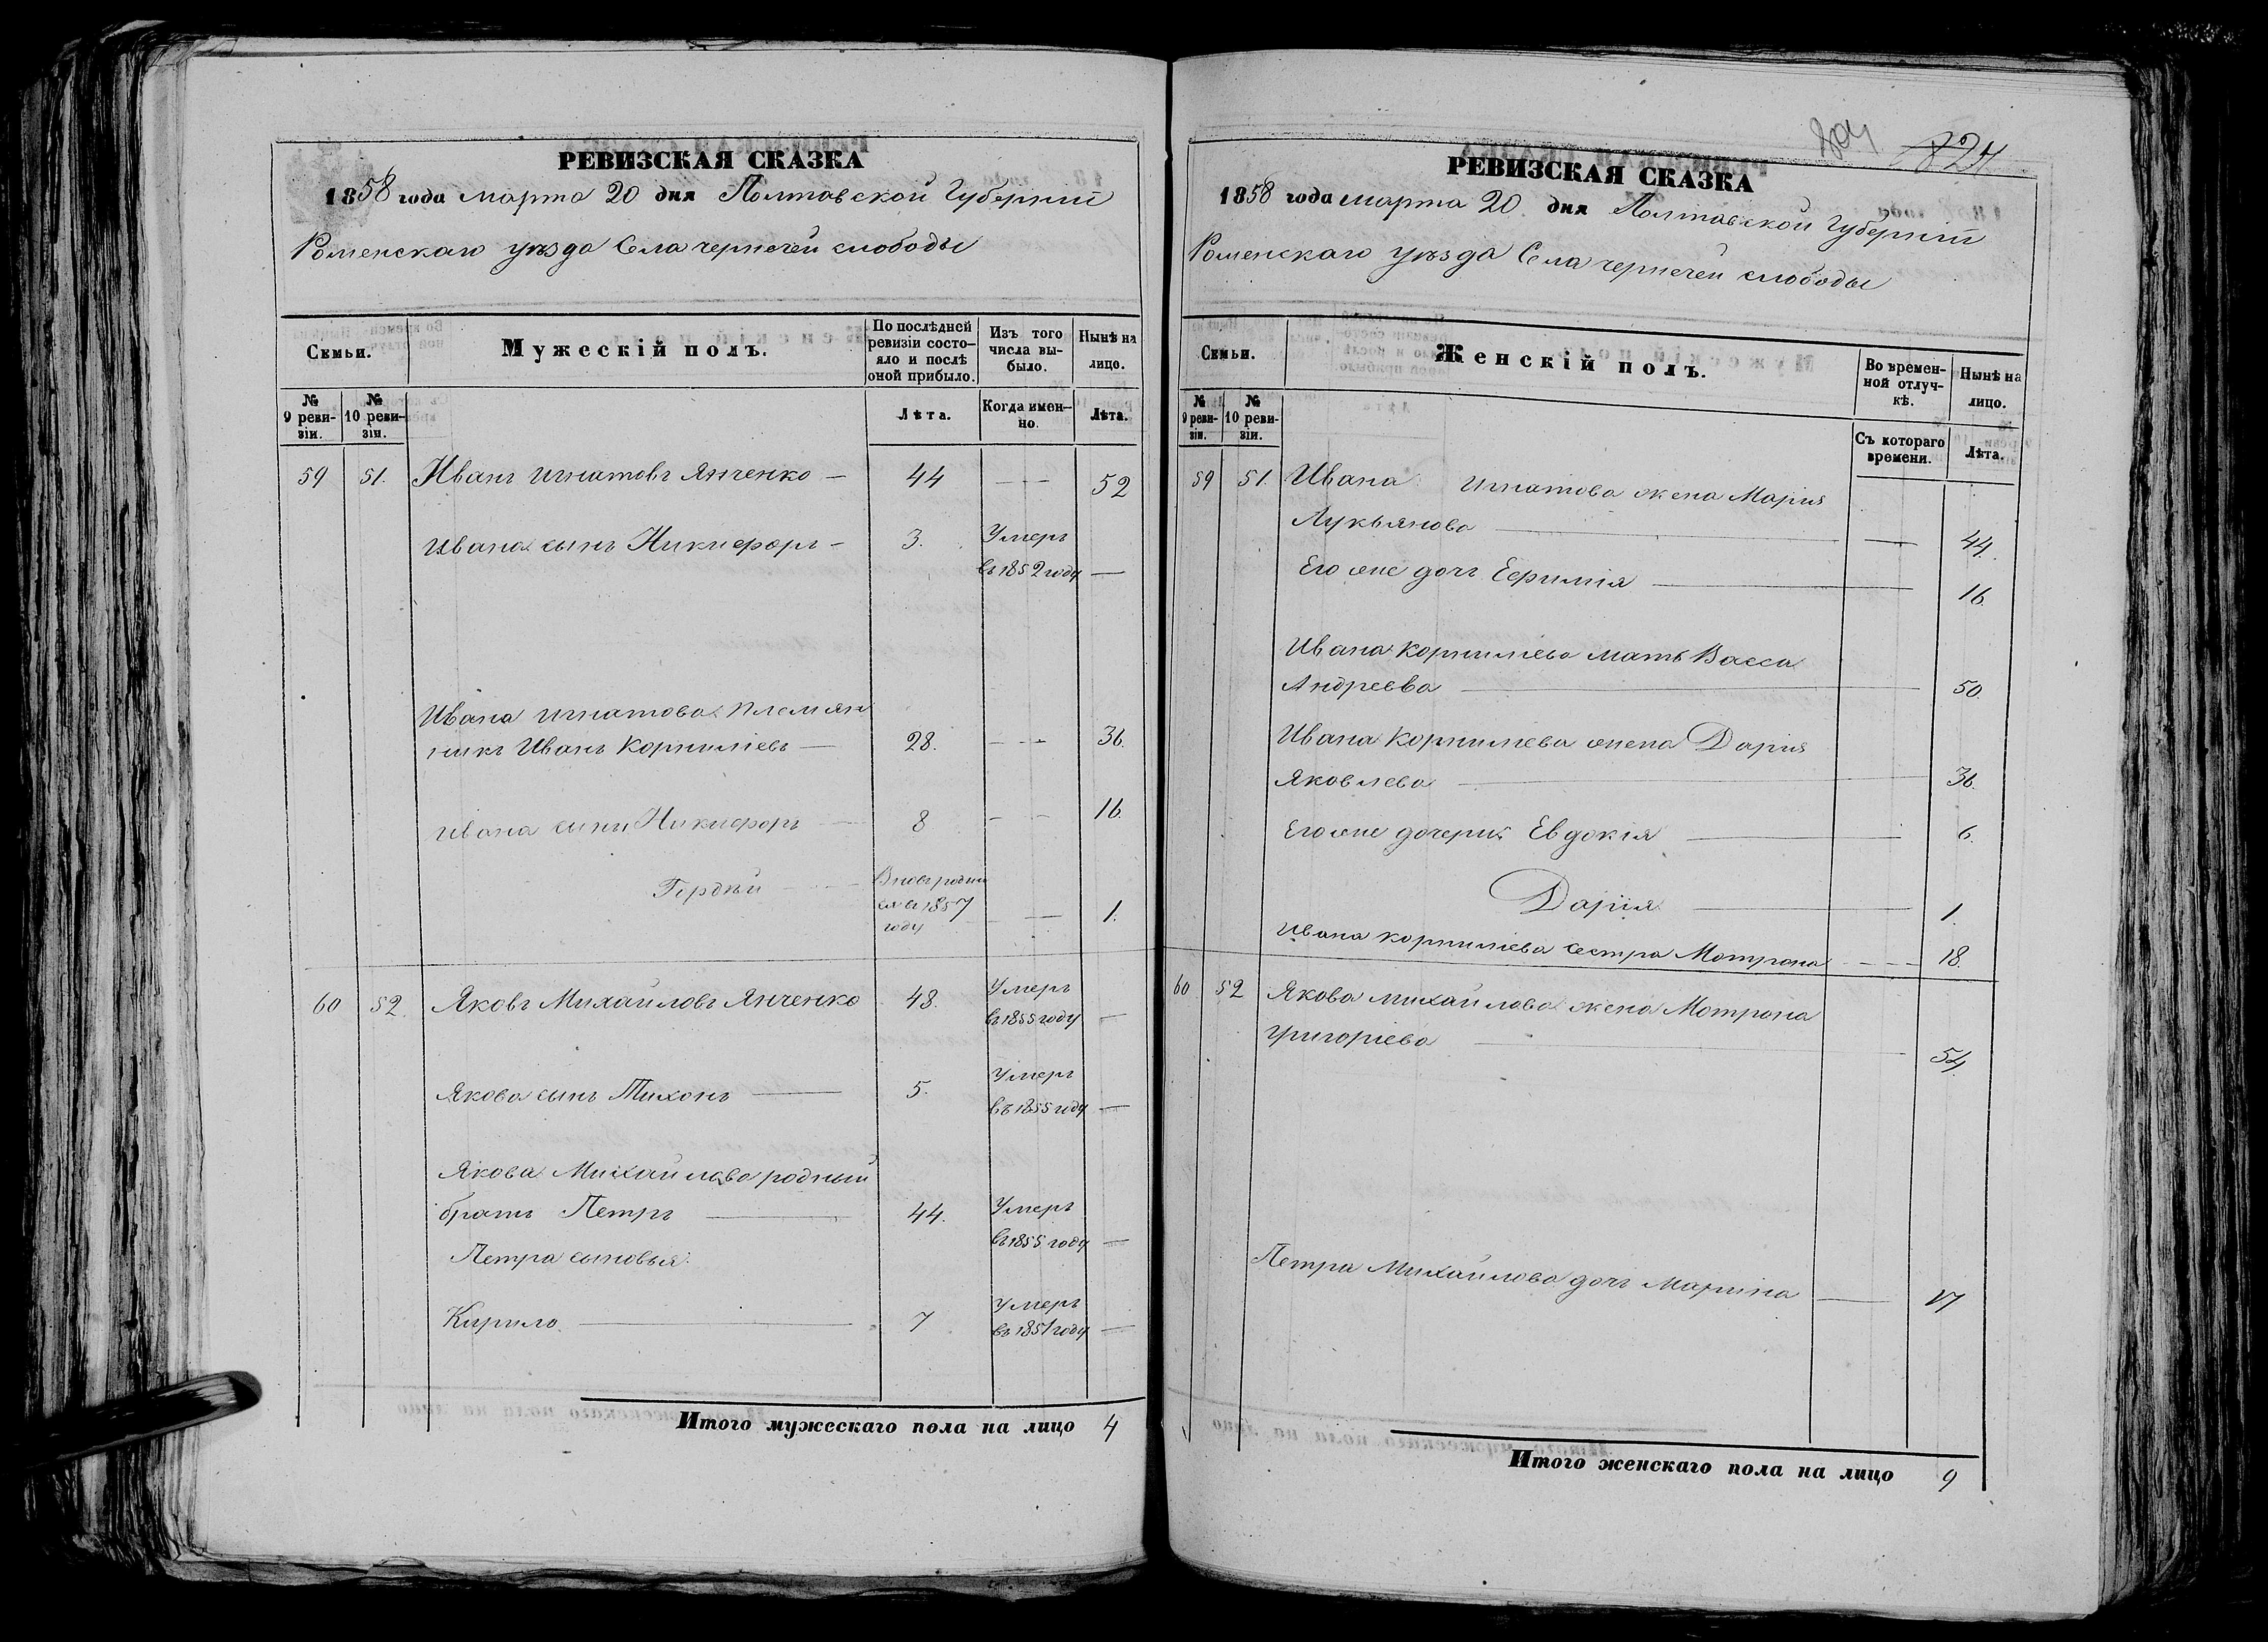 РЕВИЗСКАЯ СКАЗКА
1858 года марта 20 дня Полтавской Губерніи
Роменскаго уѣзда Села чернечей слободы
Семьи.
Мужескій полъ.
По послѣдней ревизіи состояло и послѣ оной прибыло.
Изъ того числа выбыло.
Нынѣ на лицо.
№ 9 ревизіи.
№ 10 ревизіи.
Лѣта.
Когда именно.
Лѣта.
59 51. Иванъ Игнатовъ Янченко — 44 — — 52
Ивана сынъ Никифоръ — 3. Умеръ
въ 1852 году —
Ивана Игнатова племян
никъ Иванъ Корниліевъ — 28. — — 36.
Ивана сыни Никифоръ — 8 — — 16.
Гордѣй — Вновьродил
ся въ 1857 — 1.
году
60 52. Яковъ Михайловъ Янченко 48. Умеръ
въ 1855 году —
Якова сынъ Тихонъ — 5. Умеръ
въ 1855 году —
Якова Михайлова родный
братъ Петръ — 44. Умеръ
въ 1855 году —
Петра сыновья:
Кирило — 7 Умеръ
въ 1851 году —
Итого мужескаго пола на лицо 4
824
РЕВИЗСКАЯ СКАЗКА
1858 года марта 20 дня Полтавской Губерніи
Роменскаго уѣзда Села чернечей слободы
Семьи.
Женскій полъ.
Во временной отлучкѣ.
Нынѣ на лицо.
№ 9 ревизіи.
№ 10 ревизіи.
Съ котораго времени.
Лѣта.
59 51. Ивана Игнатова жена Марія
Лукьянова — — 44.
Его же дочъ Ефимія — 16.
Ивана Корниліева мать Васса
Андреева — 50.
Ивана Корниліева жена Дарія
Яковлева — 36.
Его же дочери: Евдокія — 6.
Дарія — 1.
Ивана Корниліева сестра Мотрона — 18.
60 52 Якова Михайлова жена Мотрона
Григоріева — 54.
Петра Михайлова дочъ Марина — 17
Итого женскаго пола на лицо 9